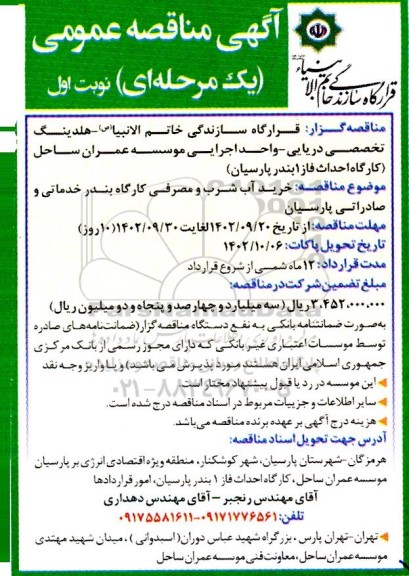 آگهی مناقصه عمومی
(یک مرحله‌ای) نوبت اول
قرارگاه سازندگی خاتم الانبیاء
مناقصه گزار: قرارگاه سازندگی خاتم الانبیا(ص)-هلدینگ
تخصصی دریایی-واحد اجرایی موسسه عمران ساحل
(کارگاه احداث فاز ۱ بندر پارسیان)
موضوع مناقصه: خرید آب شرب و مصرفی کارگاه بندر خدماتی و
صادراتی پارسیان
مهلت مناقصه: از تاریخ ۱۴۰۲/۰۹/۲۰ لغایت ۱۴۰۲/۰۹/۳۰ (۱۰ روز)
تاریخ تحویل پاکات: ۱۴۰۲/۱۰/۰۶
مدت قرارداد: ۱۲ ماه شمسی از شروع قرارداد
مبلغ تضمین شرکت در مناقصه:
۳.۴۵۲.۰۰۰.۰۰۰ ریال (سه میلیارد و چهارصد و پنجاه و دو میلیون ریال)
به‌صورت ضمانتنامه بانکی به نفع دستگاه مناقصه گزار (ضمانت‌نامه‌های صادره
توسط موسسات اعتباری غیر بانکی که دارای مجوز رسمی از بانک مرکزی
جمهوری اسلامی ایران هستند مورد پذیرش می‌باشید) و یا واریز وجه نقد
این موسسه در رد یا قبول پیشنهاد مختار است.
سایر اطلاعات و جزییات مربوط در اسناد مناقصه درج شده است.
هزینه درج آگهی بر عهده برنده مناقصه می‌باشد.
آدرس جهت تحویل اسناد مناقصه:
هرمزگان-شهرستان پارسیان، شهر کوشکنار، منطقه ویژه اقتصادی انرژی بر پارسیان
موسسه عمران ساحل، کارگاه احداث فاز ۱ بندر پارسیان، امور قراردادها
آقای مهندس رنجبر – آقای مهندس دهداری
تلفن: ۰۹۱۷۱۷۷۶۵۶۱-۰۹۱۷۵۵۸۱۶۱۱
تهران-تهران پارس، بزرگراه شهید عباس دوران (اسبدوانی)، میدان شهید مهتدی
موسسه عمران ساحل، معاونت فنی موسسه عمران ساحل